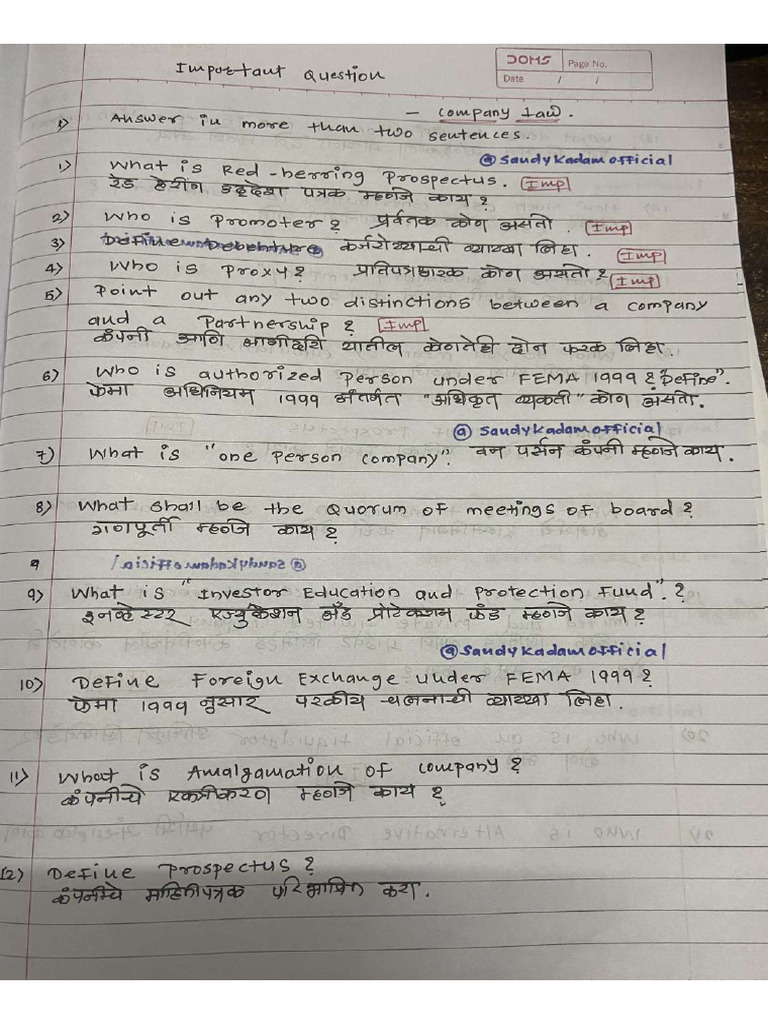 Important Question
DOMS Page No.
Date / /
– Company Law.
1) Answer in more than two sentences.
@saudykadamofficial
1) What is Red-herring Prospectus. Imp
रेड हेरींग उद्देश पत्रक म्हणजे काय?
2) Who is Promoter? प्रर्वतक कोण असतो. Imp
3) Define Debenture कर्जरोख्याची व्याख्या लिहा. Imp
4) Who is Proxy? प्रतिपत्रधारक कोण असतो? Imp
5) Point out any two distinctions between a company
and a Partnership? Imp
कंपनी आणि भागीदारी यातील कोणतेही दोन फरक लिहा.
6) Who is authorized Person under FEMA 1999? "Define".
फेमा अधिनियम 1999 अंतर्गत "अधिकृत व्यक्ती" कोण असतो.
@saudykadamofficial
7) What is "one Person Company". वन पर्सन कंपनी म्हणजे काय.
8) What shall be the Quorum of meetings of board?
गणपूर्ती म्हणजे काय?
9
9) What is "Investor Education and Protection Fund".?
इनव्हेस्टर एज्युकेशन अँड प्रोटेक्शन फंड म्हणजे काय?
@saudykadamofficial
10) Define Foreign Exchange under FEMA 1999?
फेमा 1999 नुसार परकीय चलनाची व्याख्या लिहा.
11) What is Amalgamation of Company?
कंपनीचे एकत्रीकरण म्हणजे काय?
12) Define Prospectus?
कंपनीचे माहितीपत्रक परिभाषित करा.